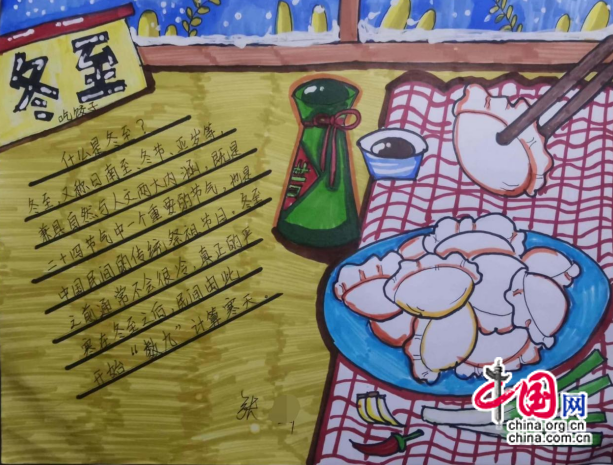 冬至
吃饺子
什么是冬至？
冬至,又称日南至、冬节、亚岁等,
兼具自然与人文两大内涵,既是
二十四节气中一个重要的节气,也是
中国民间的传统祭祖节日。冬至
之前通常不会很冷,真正的严
寒在冬至之后,民间由此
开始“数九”计算寒天。
中国网
china.org.cn
china.com.cn